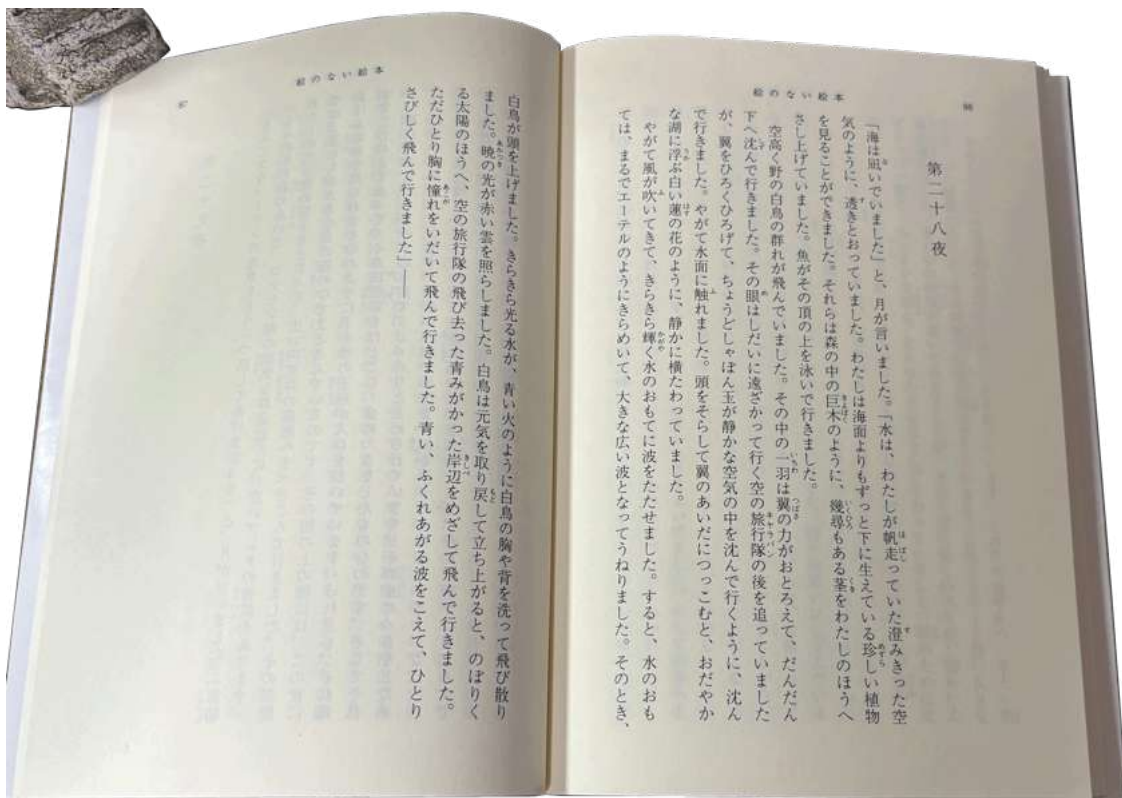 絵のない絵本
第二十八夜
「海は凪いでいました」と、月が言いました。「水は、わたしが帆走っていた澄みきった空
気のように、透きとおっていました。わたしは海面よりもずっと下に生えている珍しい植物
を見ることができました。それらは森の中の巨木のように、幾尋もある茎をわたしのほうへ
さし上げていました。魚がその頂の上を泳いで行きました。
空高く野の白鳥の群れが飛んでいました。その中の一羽は翼の力がおとろえて、だんだん
下へ沈んで行きました。その眼はしだいに遠ざかって行く空の旅行隊の後を追っていました
が、翼をひろくひろげて、ちょうどしゃぼん玉が静かな空気の中を沈んで行くように、沈ん
で行きました。やがて水面に触れました。頭をそらして翼のあいだにつっこむと、おだやか
な湖に浮ぶ白い蓮の花のように、静かに横たわっていました。
やがて風が吹いてきて、きらきら輝く水のおもてに波をたたせました。すると、水のおも
ては、まるでエーテルのようにきらめいて、大きな広い波となってうねりました。そのとき、
絵のない絵本
白鳥が頭を上げました。きらきら光る水が、青い火のように白鳥の胸や背を洗って飛び散り
ました。暁の光が赤い雲を照らしました。白鳥は元気を取り戻して立ち上がると、のぼりく
る太陽のほうへ、空の旅行隊の飛び去った青みがかった岸辺をめざして飛んで行きました。
ただひとり胸に憧れをいだいて飛んで行きました。青い、ふくれあがる波をこえて、ひとり
さびしく飛んで行きました」――